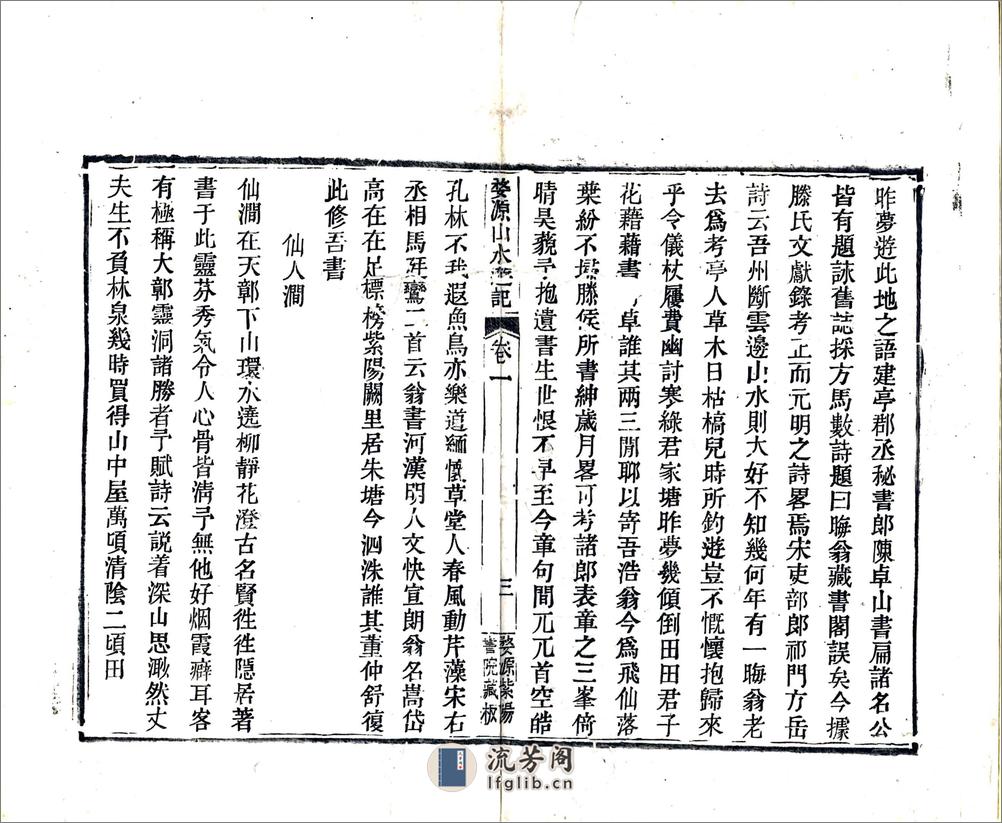 昨夢遊此地之語建亭郡丞秘書郎陳卓山書扁諸名公
皆有題詠舊誌採方馬數詩題曰晦翁藏書閣誤矣今據
滕氏文獻錄考正而元明之詩畧焉宋吏部郎祁門方岳
詩云吾州斷雲邊山水則大好不知幾何年有一晦翁老
去爲考亭人草木日枯槁兒時所釣遊豈不慨懷抱歸來
乎令儀杖屨費幽討寒綠君家塘昨夢幾傾倒田田君子
花藉藉書 卓誰其兩三閒聊以寄吾浩翁今爲飛仙落
葉紛不掃滕侯所書紳歲月畧可考諸郎表章之三峯倚
晴昊藐予抱遺書生世恨不早至今章句間兀兀首空皓
婺源山水遊記
卷一
三
婺源紫陽
書院藏板
孔林不我遐魚鳥亦樂道緬懷草堂人春風動芹藻宋右
丞相馬廷鸞二首云翁書河漢明人文快宣朗翁名嵩岱
高在在足標榜紫陽闕里居朱塘今泗洙誰其董仲舒復
此修吾書
仙人澗
仙澗在天鄣下山環水遶柳靜花澄古名賢徃徃隱居著
書于此靈芬秀氣令人心骨皆淸予無他好烟霞癖耳客
有極稱大鄣靈洞諸勝者予賦詩云説着深山思渺然丈
夫生不負林泉幾時買得山中屋萬頃清陰二頃田
流芳阁
lfglib.cn